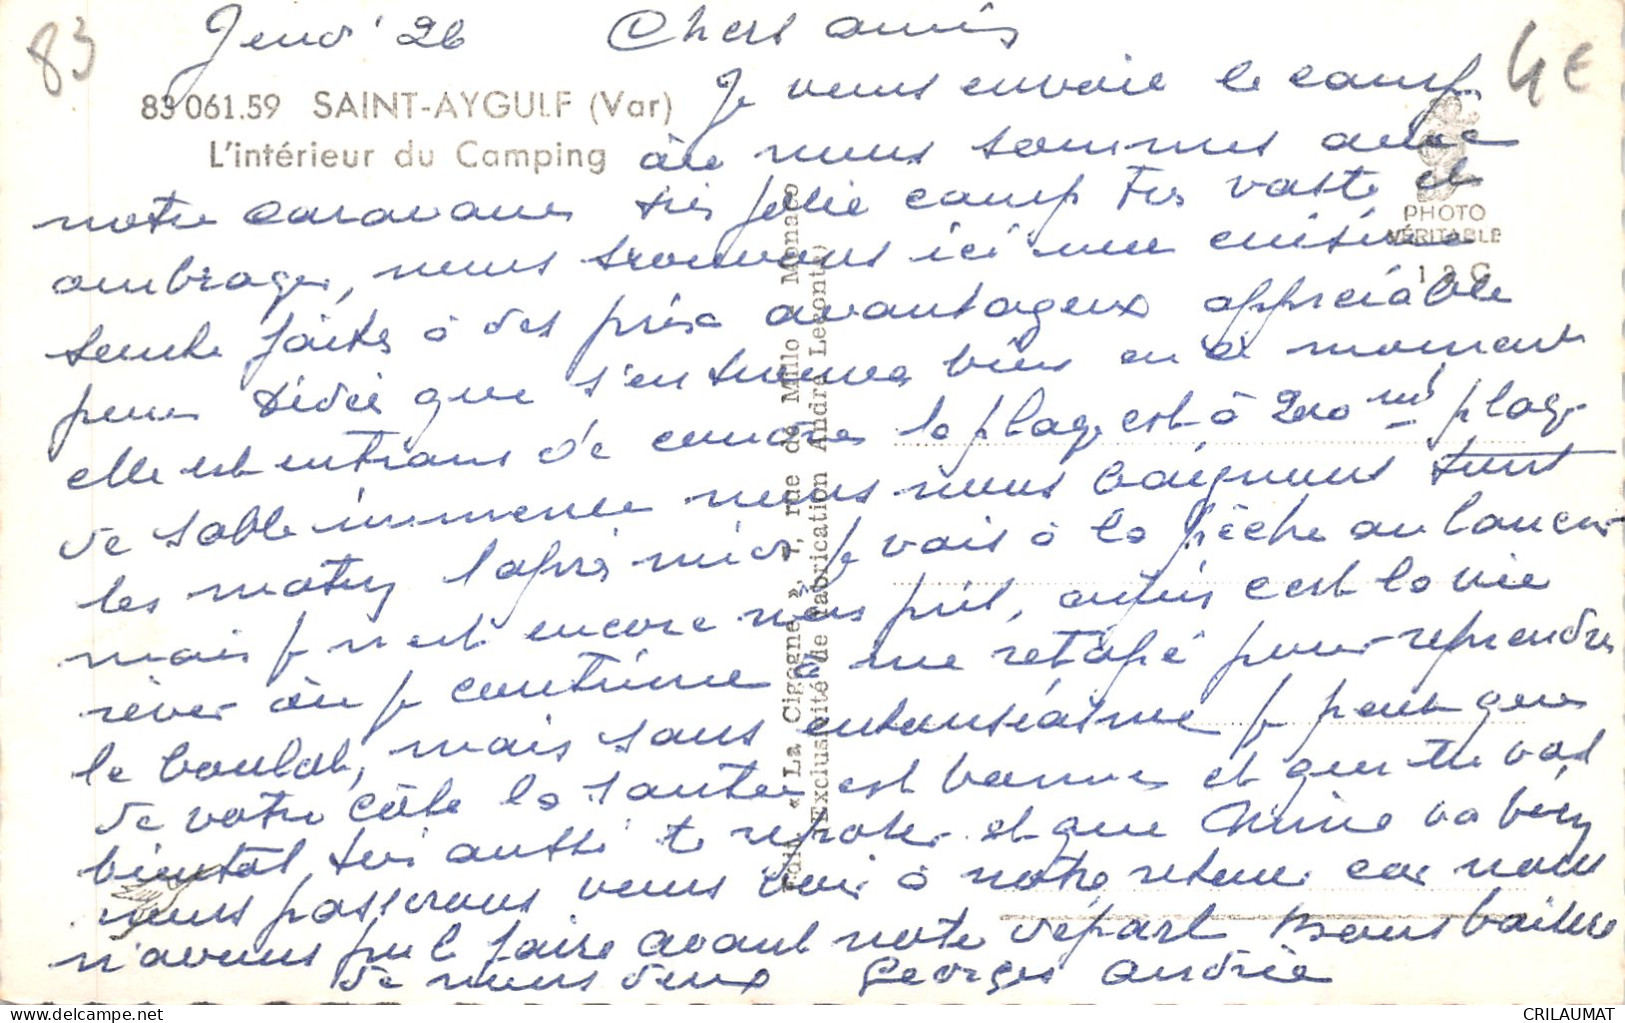 83
Jeud' 26 Chers amis
4€
83 061.59 SAINT-AYGULF (Var)
L'intérieur du Camping
Je vous envoie le camp
où nous sommes avec
notre caravane très jolie camp très vaste et
ombragé, nous trouvons ici une cuisine
toute faite à des prix avantageux appréciable
pour Dédée que s'en trouve bien en ce moment
elle est entrain de coudre la plage est à 200 m plage
de sable immense nous nous baignons tous
les matin, l'après midi je vais à la pêche au lancer
mais je n'est encore rien pris, c'est la vie
rêver où je continue à me retapé pour reprendre
le boulot, mais sans entousiasme je pense que
de votre côté la santée est bonne et que tu vas
bientôt toi aussi te reposer et que Mimie va bien
nous passerons vous voir à notre retour car nous
n'avons pu le faire avant note départ Bons baisers
de nous deux Georges Andrée
PHOTO
VÉRITABLE
Edit. « La Cigogne », 7, rue de Millo - Monaco
(Exclusivité de fabrication André Leconte)
CRILAUMAT